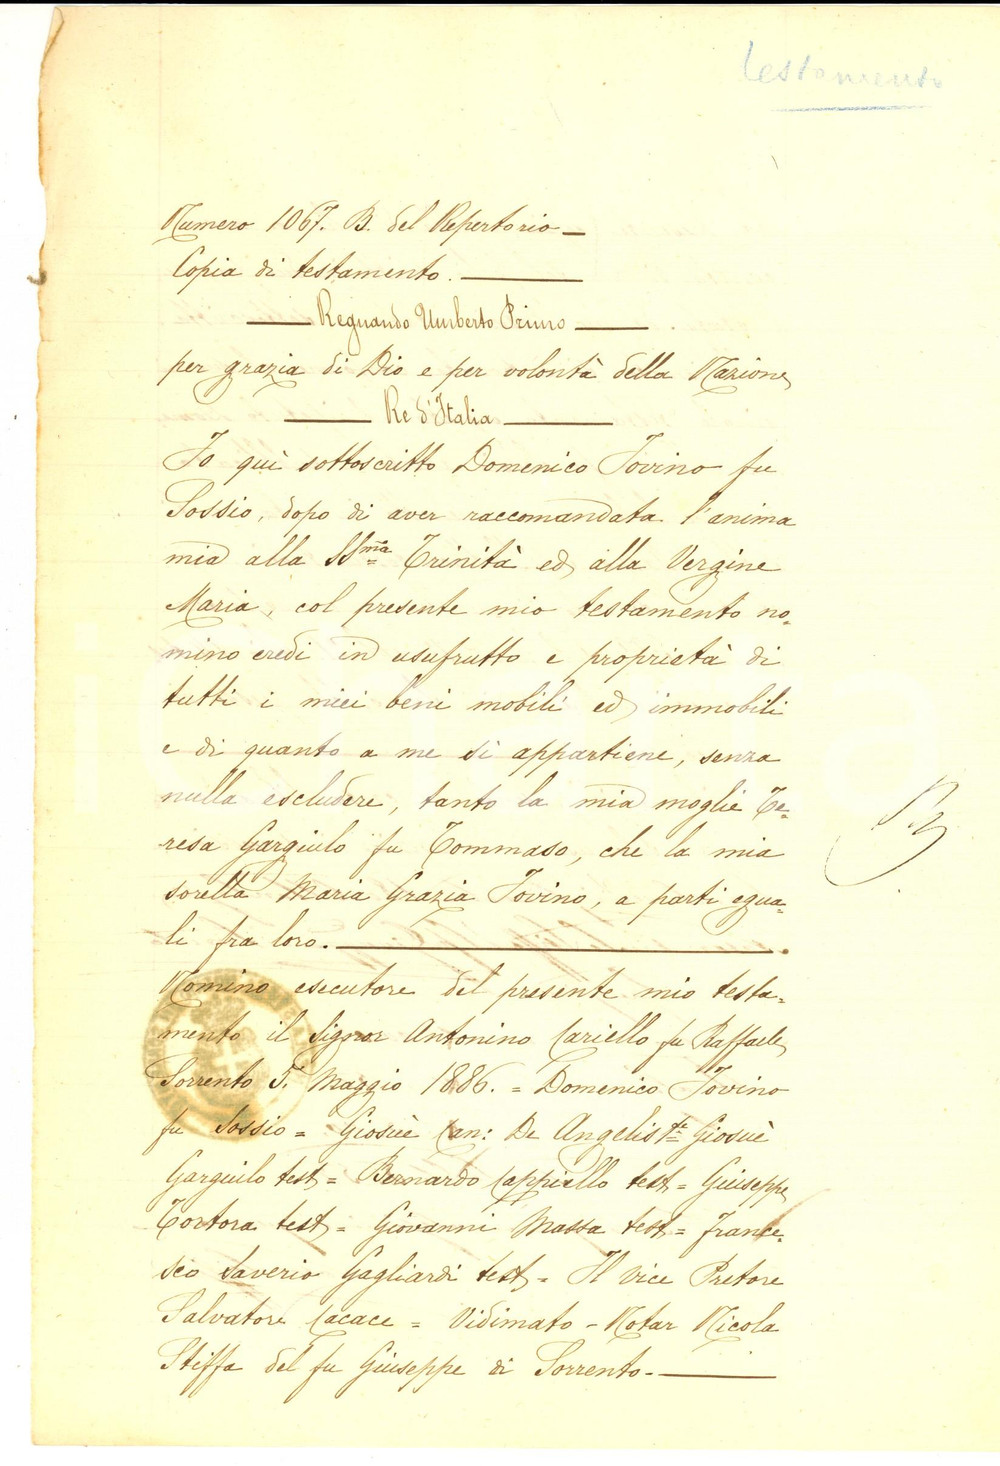 testamento
Numero 1067. B. del Repertorio
Copia di testamento.
Regnando Umberto Primo
per grazia di Dio e per volontà della Nazione
Re d'Italia
Io quì sottoscritto Domenico Iovino fu
Sossio, dopo di aver raccomandata l'anima
mia alla SSma Trinità ed alla Vergine
Maria, col presente mio testamento no-
mino eredi in usufrutto e proprietà di
tutti i miei beni mobili ed immobili
e di quanto a me si appartiene, senza
nulla escludere, tanto la mia moglie Te-
resa Gargiulo fu Tommaso, che la mia
sorella Maria Grazia Iovino, a parti egua-
li fra loro.
Nomino esecutore del presente mio testa-
mento il Signor Antonino Cariello fu Raffaele
Sorrento 5. Maggio 1886. = Domenico Iovino
fu Sossio = Giosuè Can: De Angelis tte Giosuè
Gargiulo test = Bernardo Cappiello test = Giuseppe
Tortora test = Giovanni Massa test = France-
sco Saverio Gagliardi test = Il vice Pretore
Salvatore Cacace = Vidimato - Notar Nicola
Stiffa del fu Giuseppe di Sorrento.